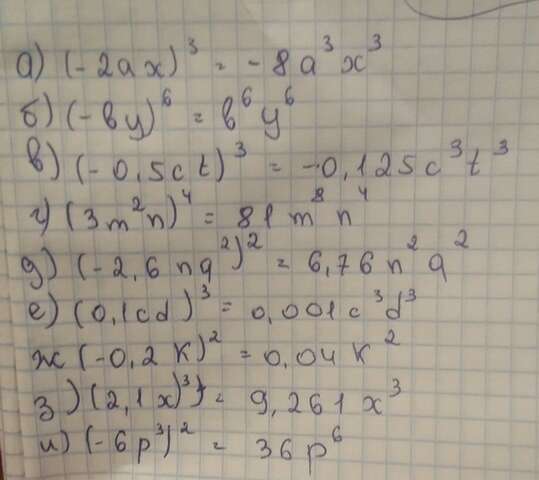 а) (-2ax)³ = -8a³x³
б) (-вy)⁶ = в⁶y⁶
в) (-0,5ct)³ = -0,125c³t³
г) (3m²n)⁴ = 81m⁸n⁴
д) (-2,6nq²)² = 6,76n²q²
е) (0,1cd)³ = 0,001c³d³
ж (-0,2к)² = 0,04к²
з) (2,1x)³) = 9,261x³
и) (-6p³)² = 36p⁶